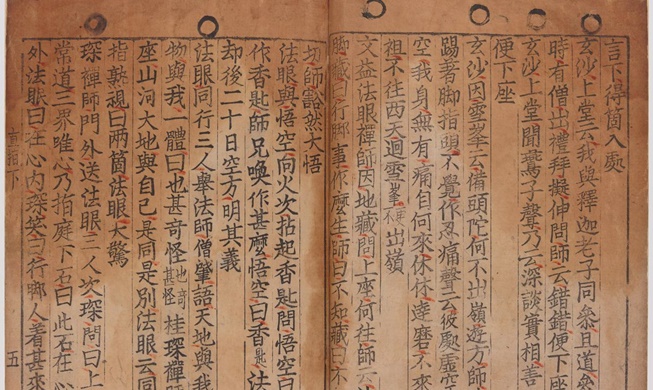 言下得箇入處
玄沙上堂云我與釋迦老子同叅且道叅
時有僧出禮拜擬伸問師云錯錯便下座
玄沙上堂聞鷰子聲乃云深談實相善
便下座
玄沙因雪峯云備頭陀何不出嶺遊方師
踢著脚指頭不覺作忍痛聲云彼處虛空
空我身無有痛自何來休休達磨不來
祖不往西天迴雪峯更不出嶺
文益法眼禪師因地藏問上座何往師云
脚藏曰行脚事作麽生師曰不知藏曰不
切師豁然大悟
法眼與悟空向火次拈起香匙問悟空曰
作香匙師兄喚作甚麽悟空曰香匙法
却後二十日空方明其義
法眼同行三人舉法師僧肇語天地與我
物與我一體曰也甚奇怪桂琛禪
座山河大地與自己是同是別法眼云同
指熟視曰兩箇法眼大驚
琛禪師門外送法眼三人次琛問曰上
常道三界唯心乃指庭下石曰此石在心
外法眼曰在心內琛笑曰行脚人著甚來
直指下 五